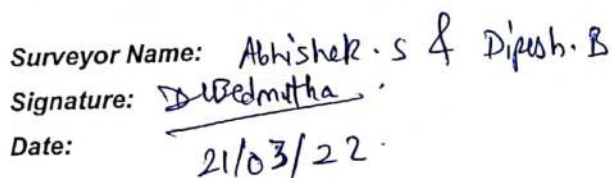 Surveyor Name: Abhishek. S & Dipesh. B
Signature: DBedmutha.
Date: 21/03/22.